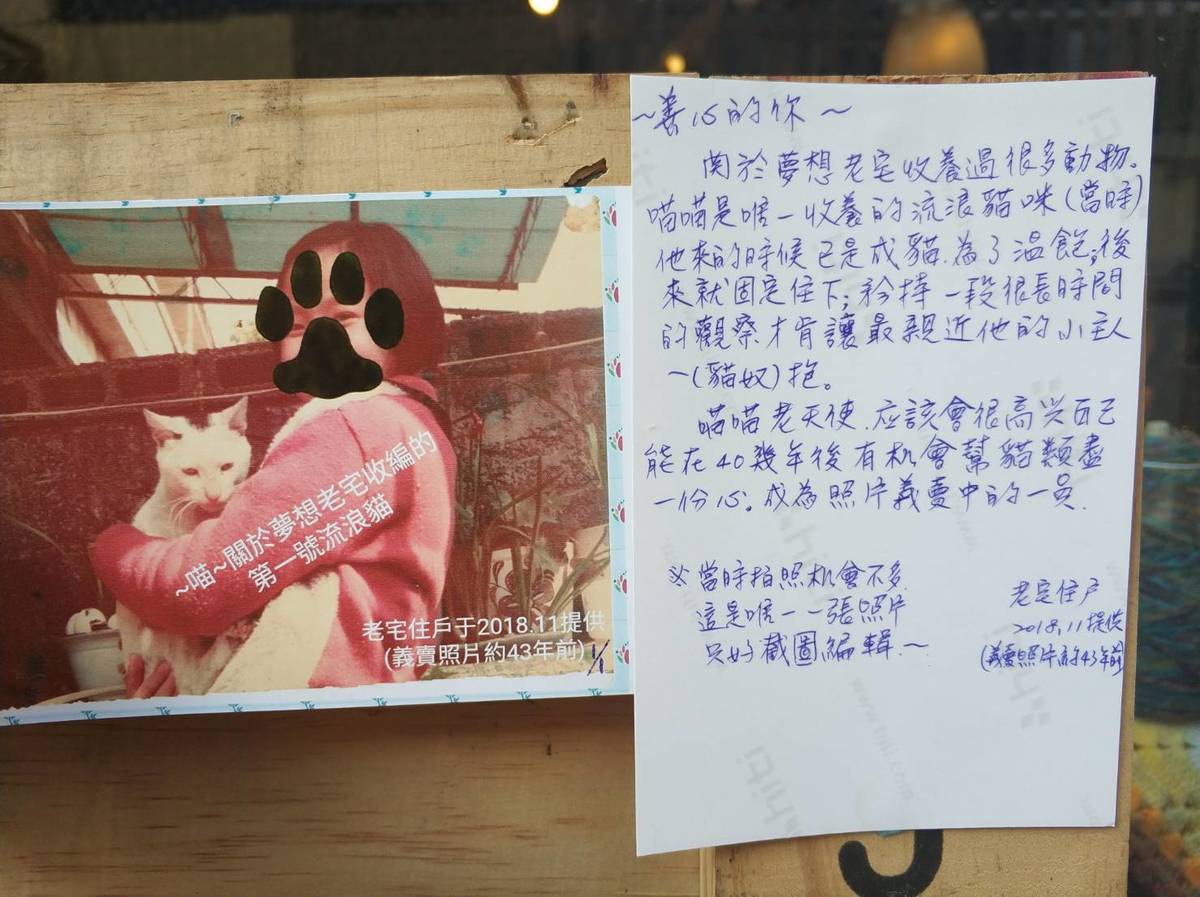 ~喵~關於夢想老宅收編的
第一號流浪貓
老宅住戶于2018.11提供
(義賣照片約43年前)
1/1
~善心的你~
関於夢想老宅收養過很多動物。
喵喵是唯一收養的流浪貓咪(當時)
他來的時候已是成貓.為了溫飽,後
來就固定住下;矜持一段很長時間
的觀察才肯讓最親近他的小主人
~(貓奴)抱。
喵喵老天使.应該會很高兴自己
能在40幾年後有机會幫貓類盡
一份心。成為照片義賣中的一員.
※當時拍照机會不多
這是唯一一張照片
只好截圖編輯~
老宅住戶
2018.11提供
(義賣照片約43年前)
hiti
www.hiti.com